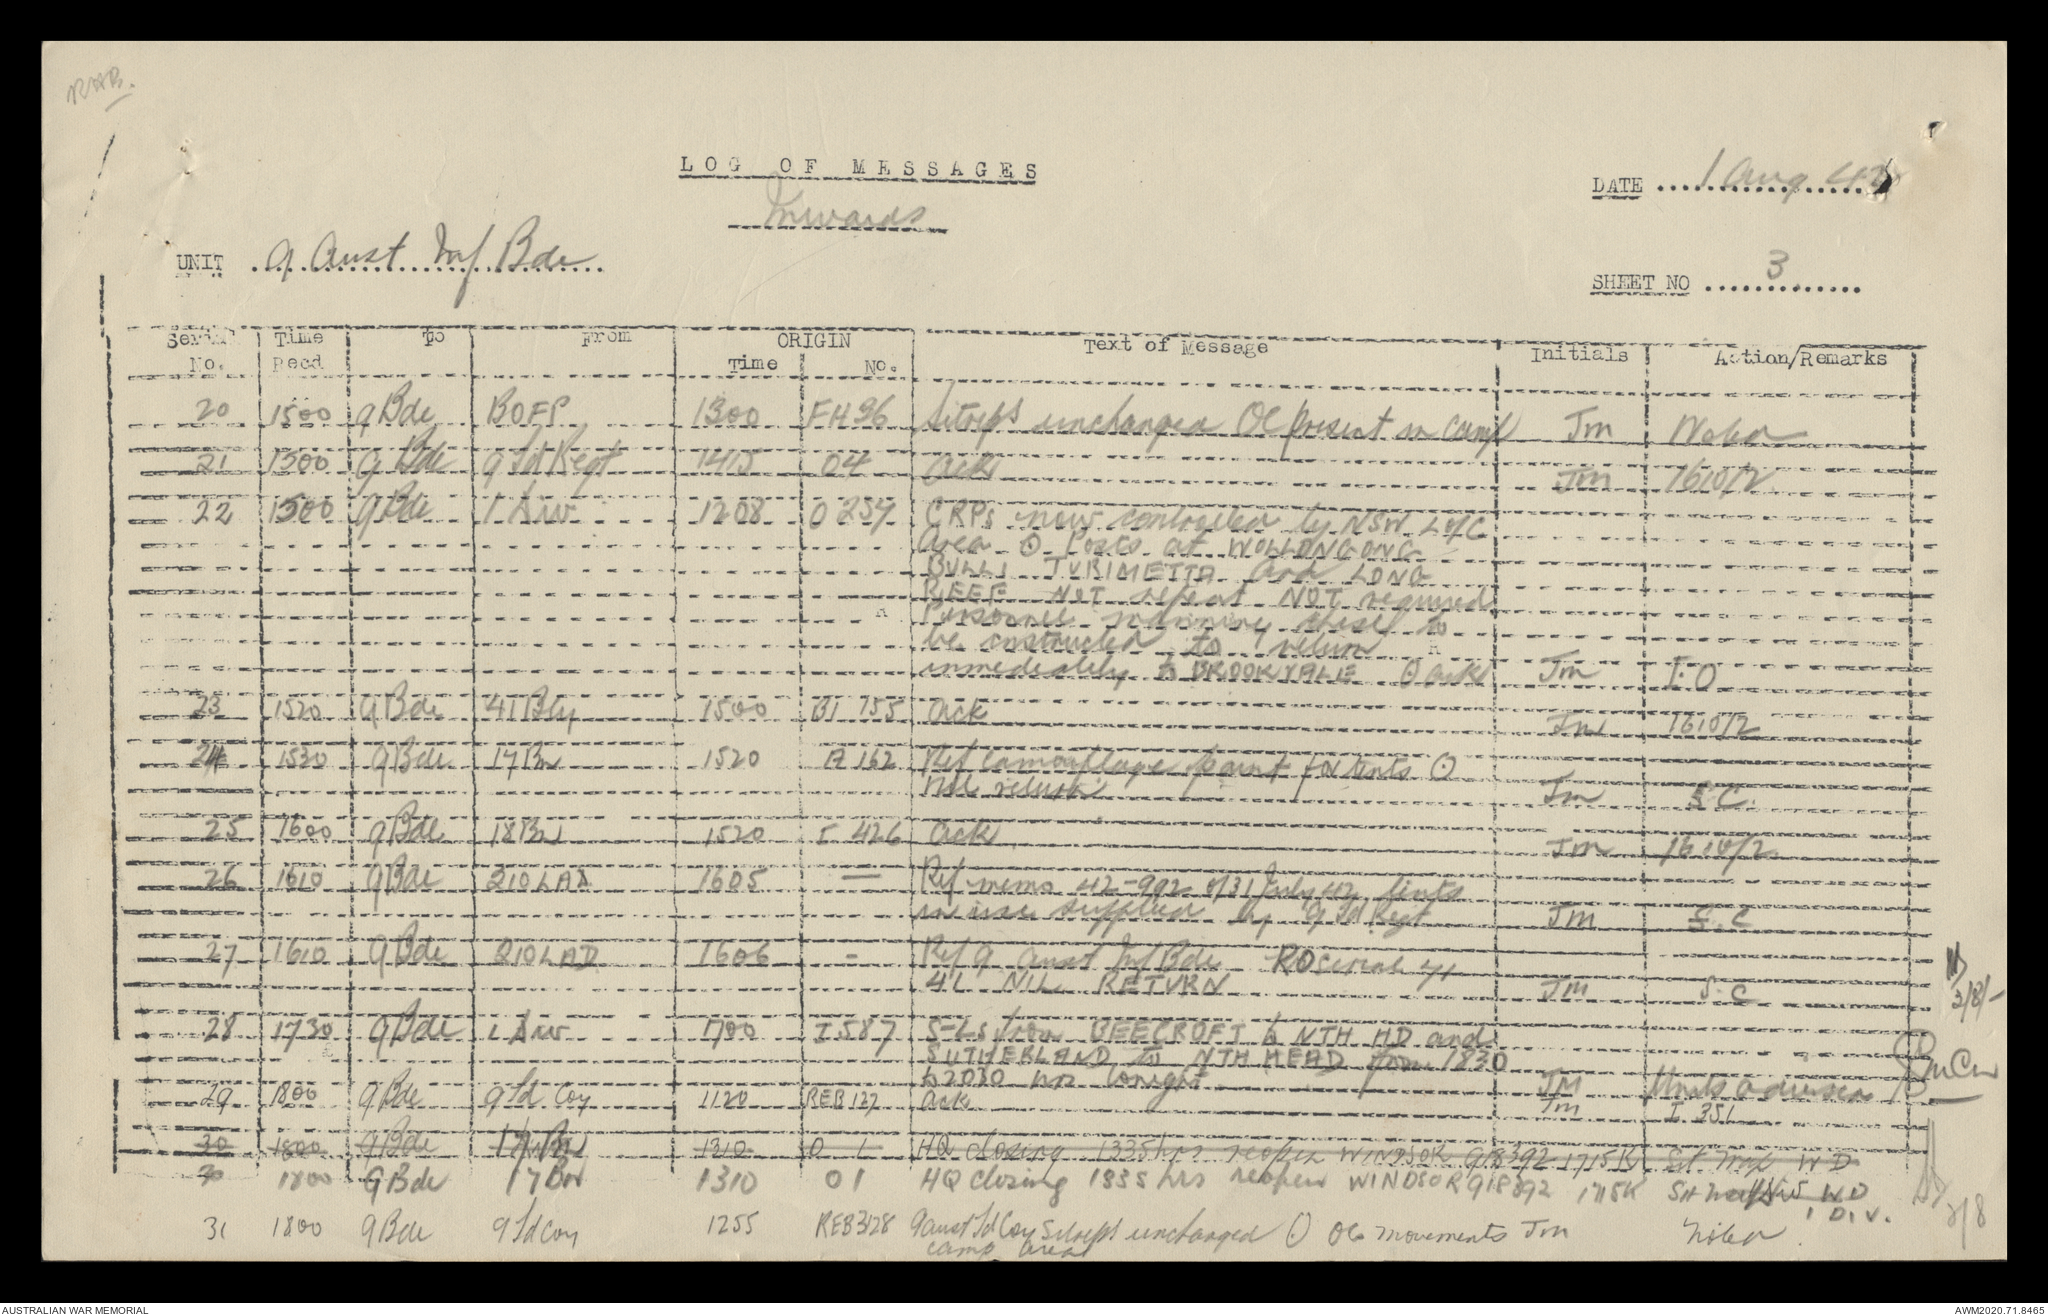 RAB.
LOG OF MESSAGES
Inwards
DATE 1 Aug 42
UNIT 9 Aust Inf Bde
SHEET NO 3
Serial No. Time Recd To From ORIGIN Time No. Text of Message Initials Action/Remarks
20 1500 9 Bde BOFP 1300 FH36 Sitreps unchanged OC present in camp Jm Noted
21 1500 9 Bde 9 Fd Regt 1415 04 Ack Jm 1610/2
22 1500 9 Bde 1 Div 1208 O 254 CRPs now controlled by NSW L of C
Area ⊙ Posts at WOLLONGONG
BULLI TURIMETTA and LONG
REEF NOT repeat NOT required
Personnel manning these to
be instructed to return
immediately to BROOKVALE ⊙ ack Jm I.O
23 1520 9 Bde 41 Bty 1500 BI 755 Ack Jm 1610/2
24 1530 9 Bde 17 Bn 1520 A 162 Ref camouflage paint for tents ⊙
Nil return Jm S.C.
25 1600 9 Bde 18 Bn 1520 I 426 Ack Jm 1610/2
26 1610 9 Bde 210 LAD 1605 — Ref memo 42-992 of 31 July 42 tents
in use supplied by 9 Fd Regt Jm S.C
27 1610 9 Bde 210 LAD 1606 - Ref 9 Aust Inf Bde RO serial 41
41 NIL RETURN Jm S.C
3/8/-
28 1730 9 Bde 1 Div 1700 I 587 S-Ls from BEECROFT to NTH HD and
SUTHERLAND to NTH HEAD from 1830
to 2030 hrs tonight Jm Units advised
29 1800 9 Bde 9 Fd Coy 1120 REB 127 Ack Jm I 351
30 1800 9 Bde 17 Bn 1310 O 1 HQ closing 1335 hrs reopen WINDSOR 918392 1715K Sit Map W D
30 1800 9 Bde 17 Bn 1310 O1 HQ closing 1335 hrs reopen WINDSOR 918392 1715K Sit map W D
1 DIV.
31 1800 9 Bde 9 Fd Coy 1255 REB3128 9 Aust Fd Coy Sitreps unchanged ⊙ OC movements Jm Noted
camp area
AUSTRALIAN WAR MEMORIAL
AWM2020.71.8465